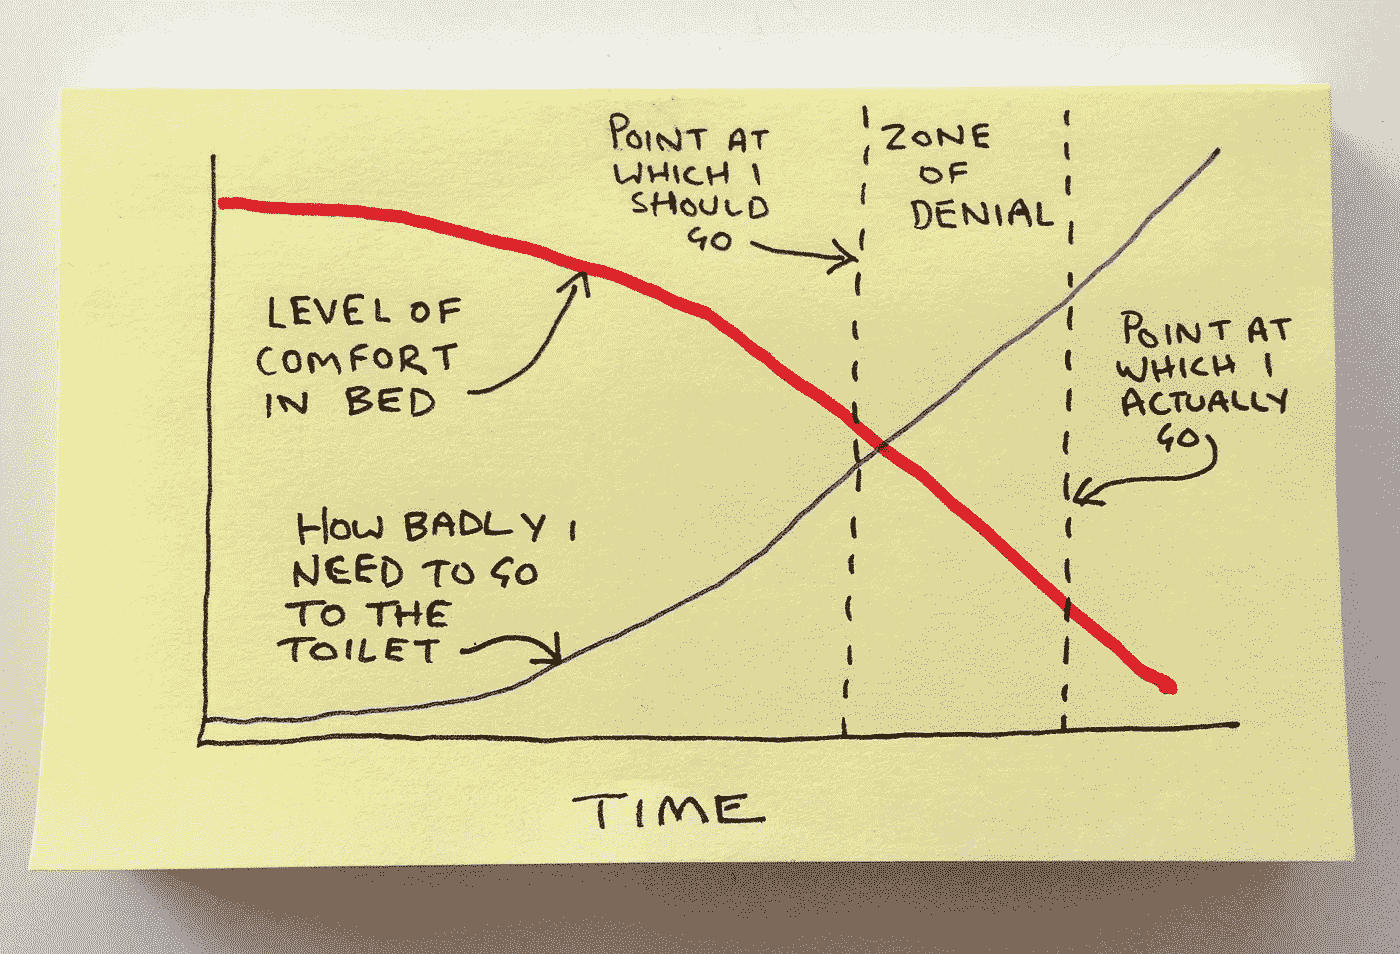 POINT AT
WHICH I
SHOULD
GO
ZONE
OF
DENIAL
LEVEL OF
COMFORT
IN BED
POINT AT
WHICH I
ACTUALLY
GO
HOW BADLY I
NEED TO GO
TO THE
TOILET
TIME